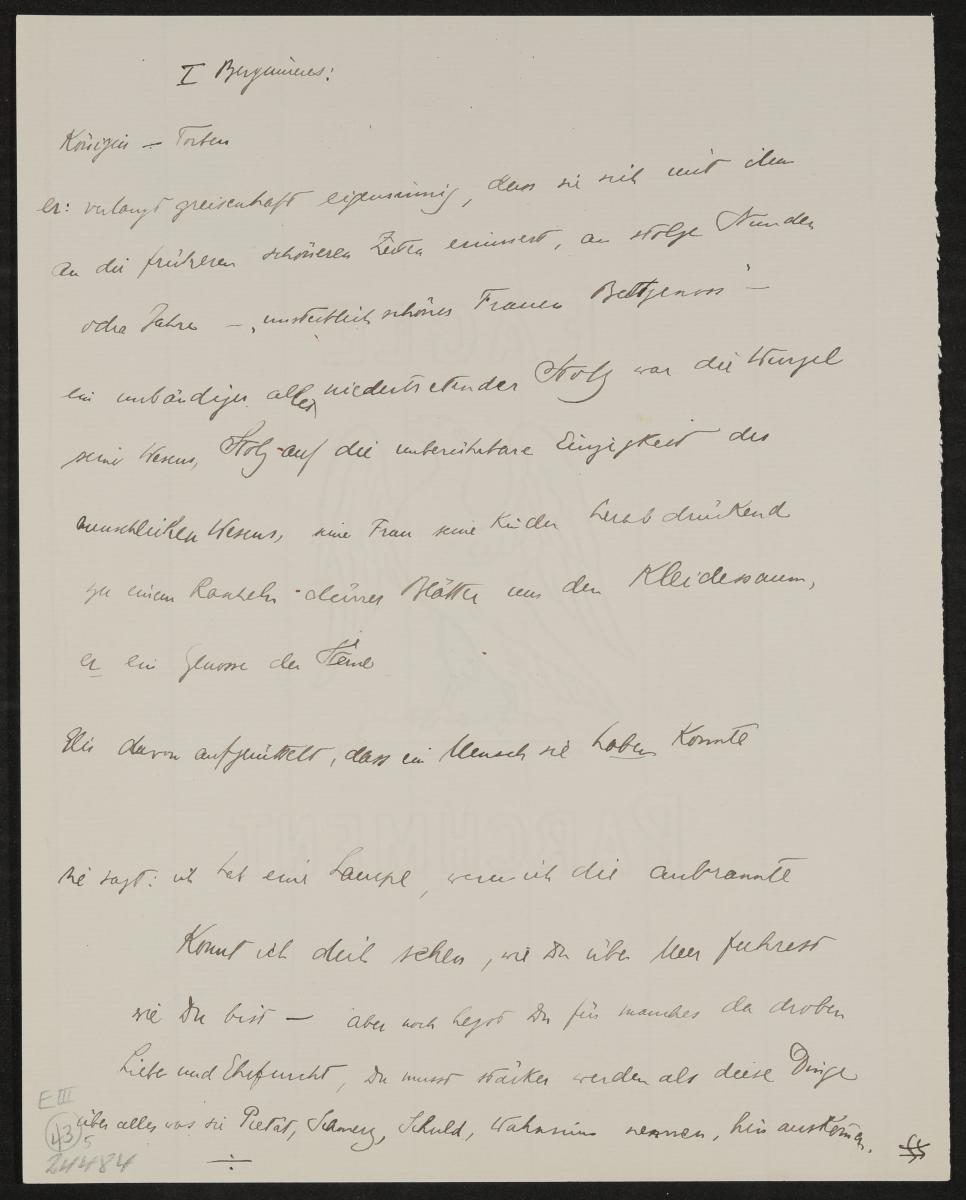 I Berginneres:
Königin – Torbern
er: verlangt greisenhaft eigensinnig, dass sie sich mit ihm
an die früheren schöneren Zeiten erinnert, an stolze Stunden
oder Jahre – „unsterblich schöner Frauen Bettgenoss" –
ein unbändiger alles niedertretender Stolz war die Wurzel
seines Wesens, Stolz auf die unberührbare Einzigkeit des
menschlichen Wesens, seine Frau seine Kinder herabdrückend
zu einem Rascheln dürrer Blätter um den Kleidessaum,
er ein Genosse der Sterne
Sie davon aufgewühlt, dass ein Mensch sie haben konnte
sie sagt: ich hab eine Lampe, wenn ich die anbrannte
Konnt ich dich sehen, wie Du über Meer fuhrest
wie Du bist – aber noch hegst Du für manches da droben
Liebe und Ehrfurcht, Du musst stärker werden als diese Dinge
über alles was sie Pietät, Schmerz, Schuld, Wahnsinn nennen, hinauskommen.
E III
43
5
24484